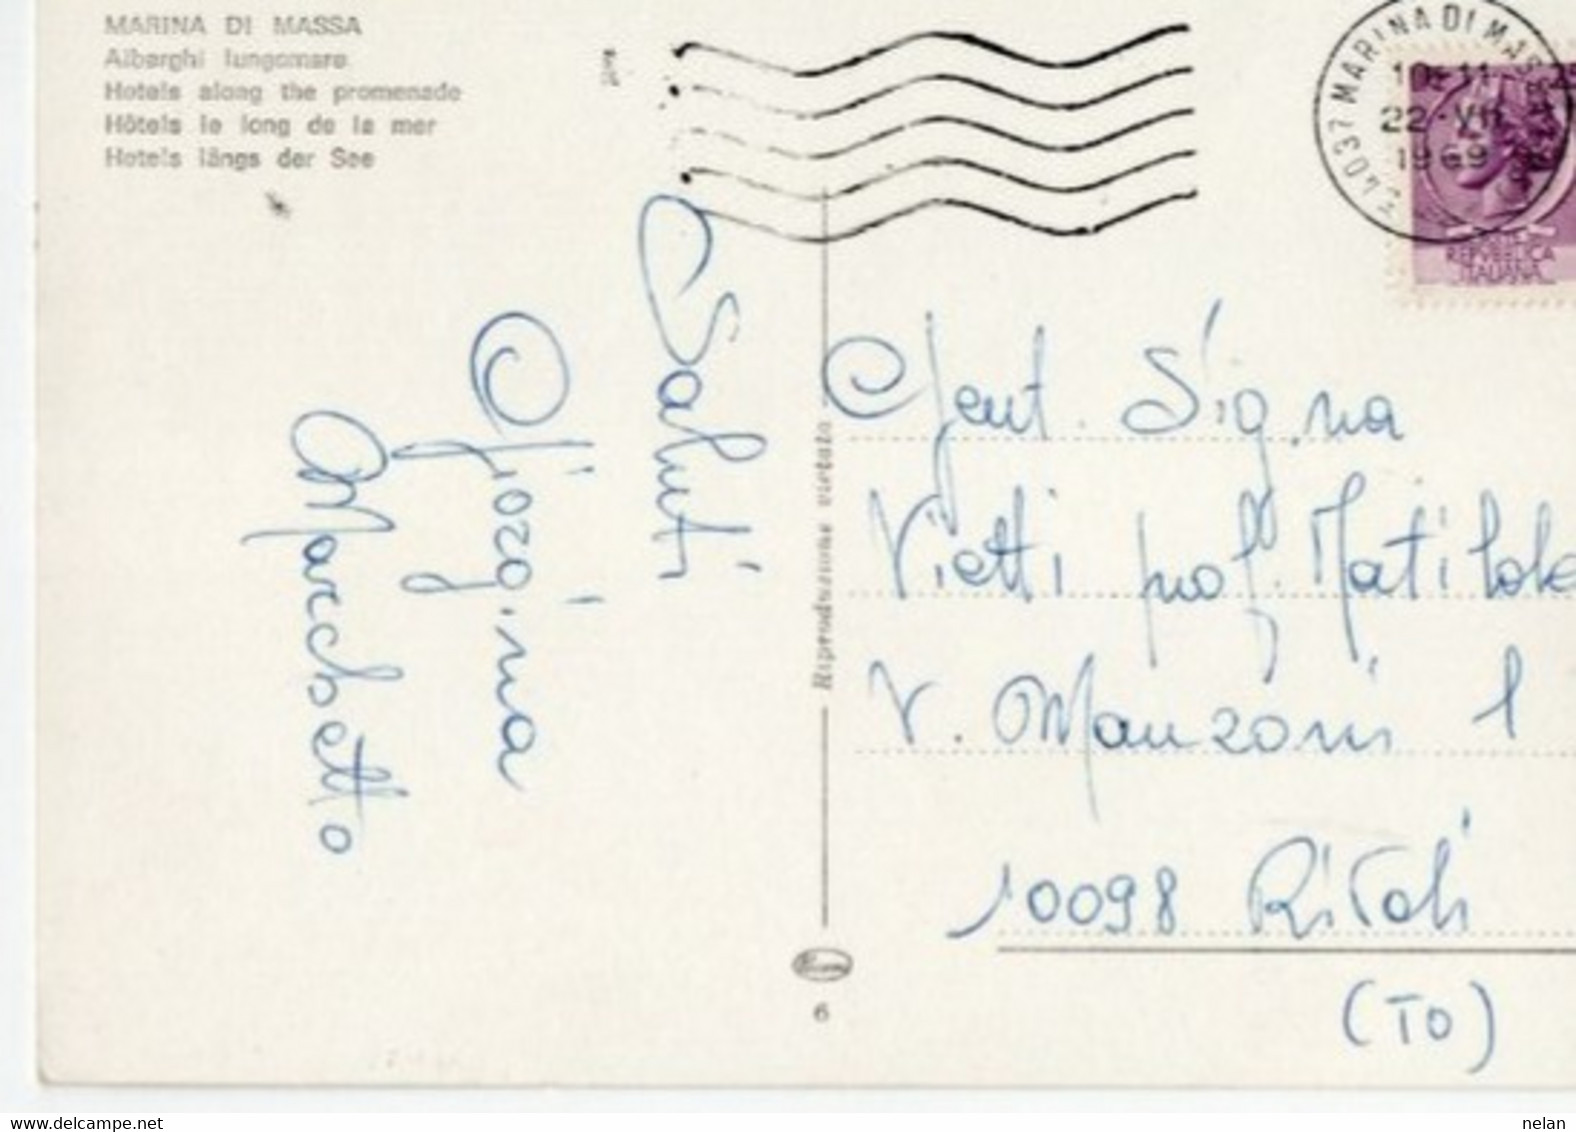 MARINA DI MASSA
Alberghi lungomare
Hotels along the promenade
Hôtels le long de la mer
Hotels längs der See
54037 MARINA DI MASSA
10-11
22-VII
1969
REPVBBLICA
ITALIANA
Saluti
Giogina
Marchetto
Riproduzione vietata
6
Gent. Sig.na
Vietti prof. Matilde
V. Manzoni 1
10098 Rivoli
(TO)
www.delcampe.net
nelan